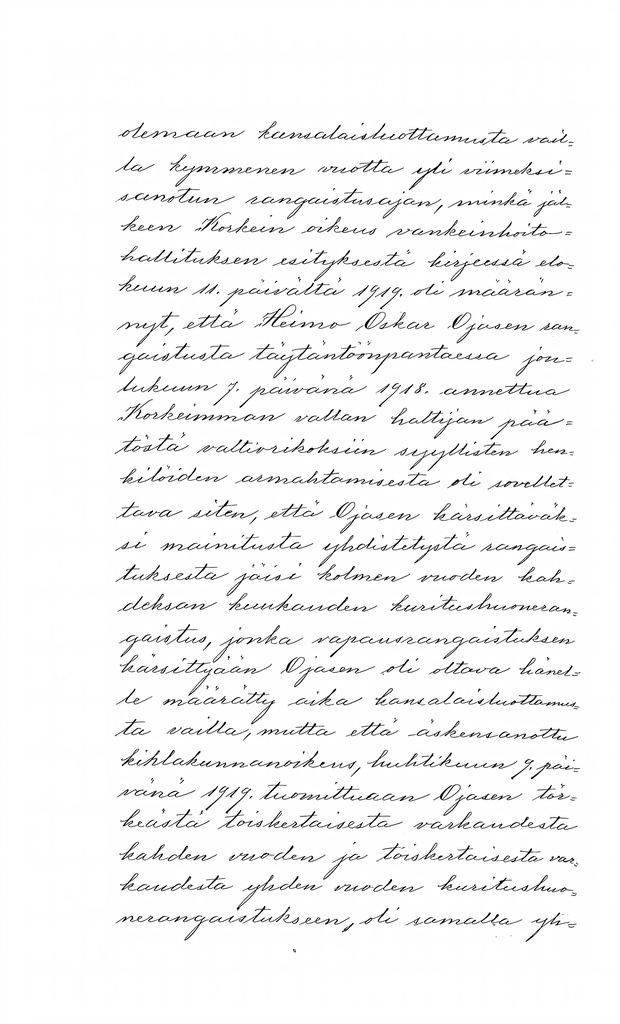 olemaan kansalaisluottamusta vail=
la kymmenen vuotta yli viimeksi=
sanotun rangaistusajan, minkä jäl=
keen Korkein oikeus vankeinhoito=
hallituksen esityksestä kirjeessä elo=
kuun 11. päivältä 1919. oli määrän=
nyt, että Heimo Oskar Ojasen ran=
gaistusta täytäntöönpantaessa jou=
lukuun 7. päivänä 1918. annettua
Korkeimman vallan haltijan pää=
töstä valtiorikoksiin syyllisten hen=
kilöiden armahtamisesta oli sovellet=
tava siten, että Ojasen kärsittäväk=
si mainitusta yhdistetystä rangais=
tuksesta jäisi kolmen vuoden kah=
deksan kuukauden kuritushuoneran=
gaistus, jonka vapausrangaistuksen
kärsittyään Ojasen oli oltava hänel=
le määrätty aika kansalaisluottamus=
ta vailla, mutta että äskensanottu
kihlakunnanoikeus, huhtikuun 9. päi=
vänä 1919. tuomittuaan Ojasen tör=
keästä toiskertaisesta varkaudesta
kahden vuoden ja toiskertaisesta var=
kaudesta yhden vuoden kuritushuo=
nerangaistukseen, oli samalla yh=